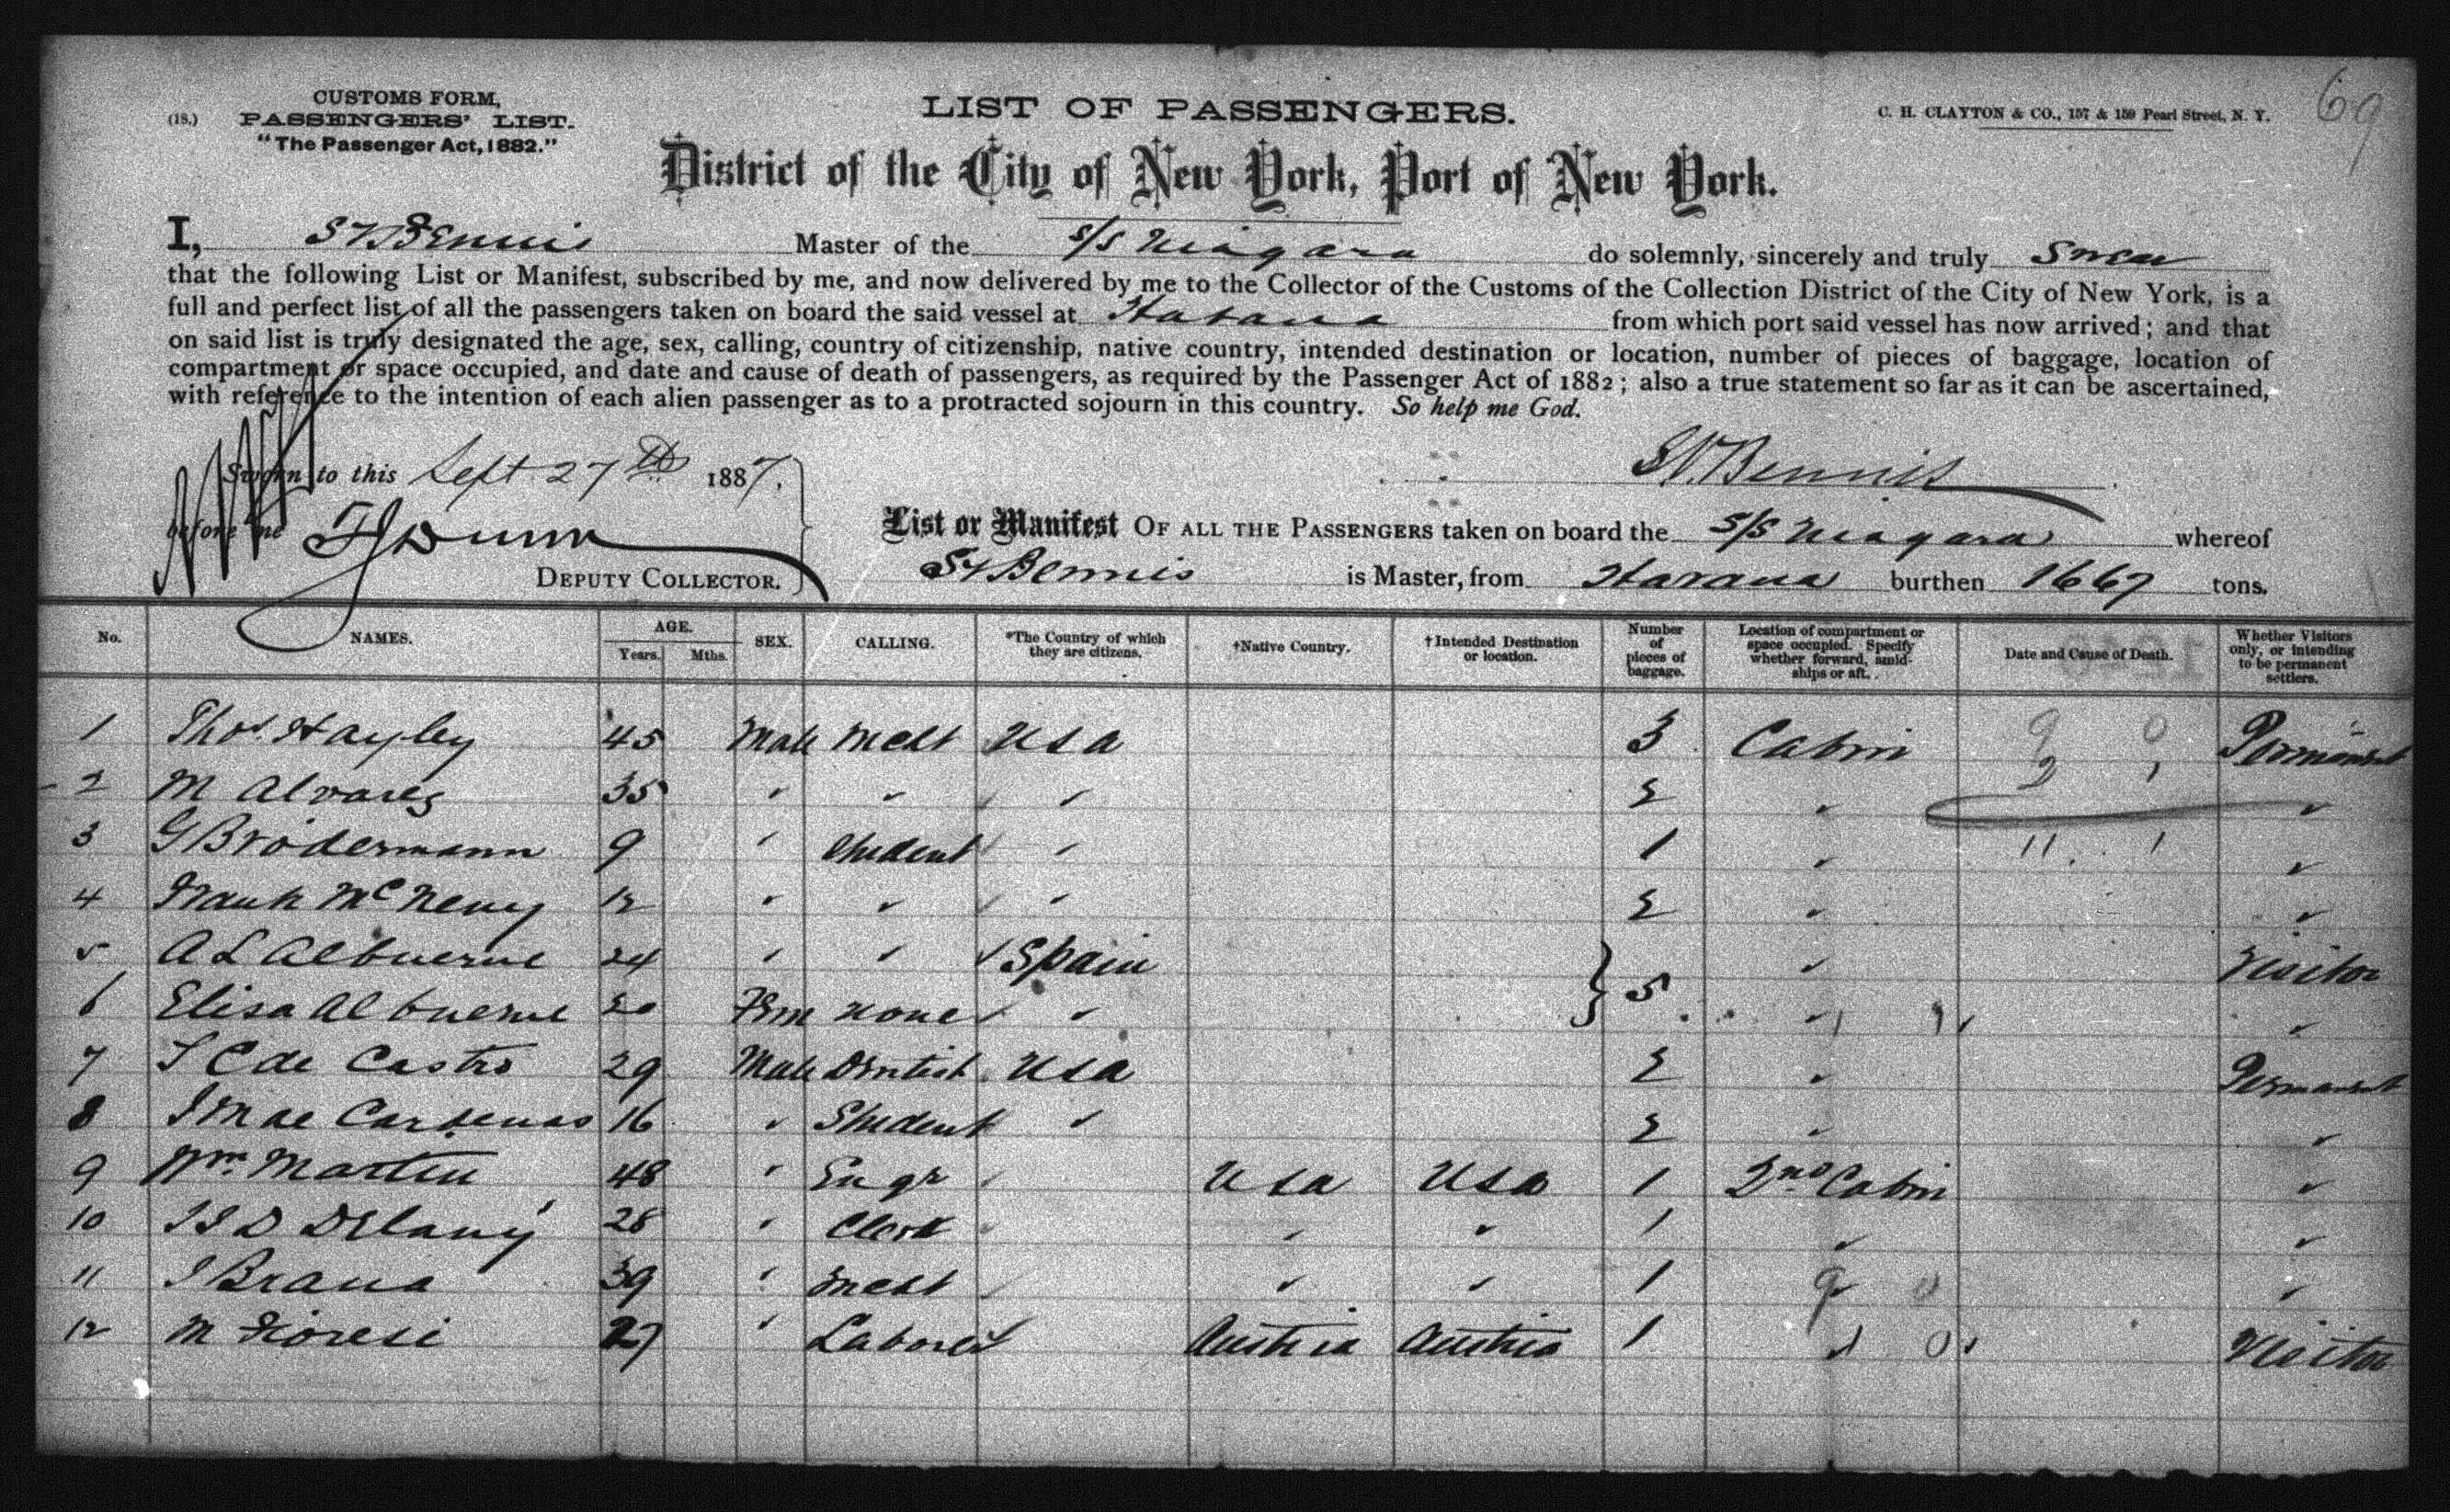 69
CUSTOMS FORM,
(18.) PASSENGERS' LIST.
"The Passenger Act, 1882."
LIST OF PASSENGERS.
C. H. CLAYTON & CO., 157 & 159 Pearl Street, N. Y.
District of the City of New York, Port of New York.
I, S Bennis Master of the S/S Niagara do solemnly, sincerely and truly Swear
that the following List or Manifest, subscribed by me, and now delivered by me to the Collector of the Customs of the Collection District of the City of New York, is a
full and perfect list of all the passengers taken on board the said vessel at Havana from which port said vessel has now arrived; and that
on said list is truly designated the age, sex, calling, country of citizenship, native country, intended destination or location, number of pieces of baggage, location of
compartment or space occupied, and date and cause of death of passengers, as required by the Passenger Act of 1882; also a true statement so far as it can be ascertained,
with reference to the intention of each alien passenger as to a protracted sojourn in this country. So help me God.
Sworn to this Sept 27th 1887.
Bennis
before me
DEPUTY COLLECTOR.
List or Manifest OF ALL THE PASSENGERS taken on board the S/S Niagara whereof
Bennis is Master, from Havana burthen 1667 tons.
No. NAMES. AGE. Years. Mths. SEX. CALLING. *The Country of which they are citizens. †Native Country. †Intended Destination or location. Number of pieces of baggage. Location of compartment or space occupied. Specify whether forward, amidships or aft. Date and Cause of Death. Whether Visitors only, or intending to be permanent settlers.
1 Thos. Hayley 45 Male Mcht USA 3 Cabin Permanent
2 M Alvarez 35 " " " 2 " "
3 G Brodermann 9 " Student " 1 " "
4 Frank McNeny 12 " " " 2 " "
5 A L Albuerne 24 " " Spain 5 " Visitor
6 Elisa Albuerne 20 Fem None " " "
7 C de Castro 29 Male Dentist USA 2 " Permanent
8 Cardenas 16 " Student " 2 " "
9 Wm Martin 48 " Engr USA USA 1 2nd Cabin "
10 D Delany 28 " Clerk " " 1 " "
11 Brana 39 " Mcht " " 1 " "
12 M Fioresi 27 " Laborer Austria Austria 1 " Visitor